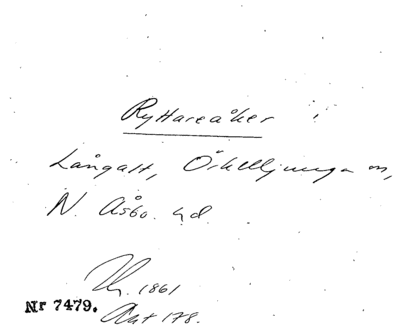 Ryttareåker
Långalt, Örkelljunga sn,
N. Åsbo hd.
1861
Nr 7479.
Akt 178.